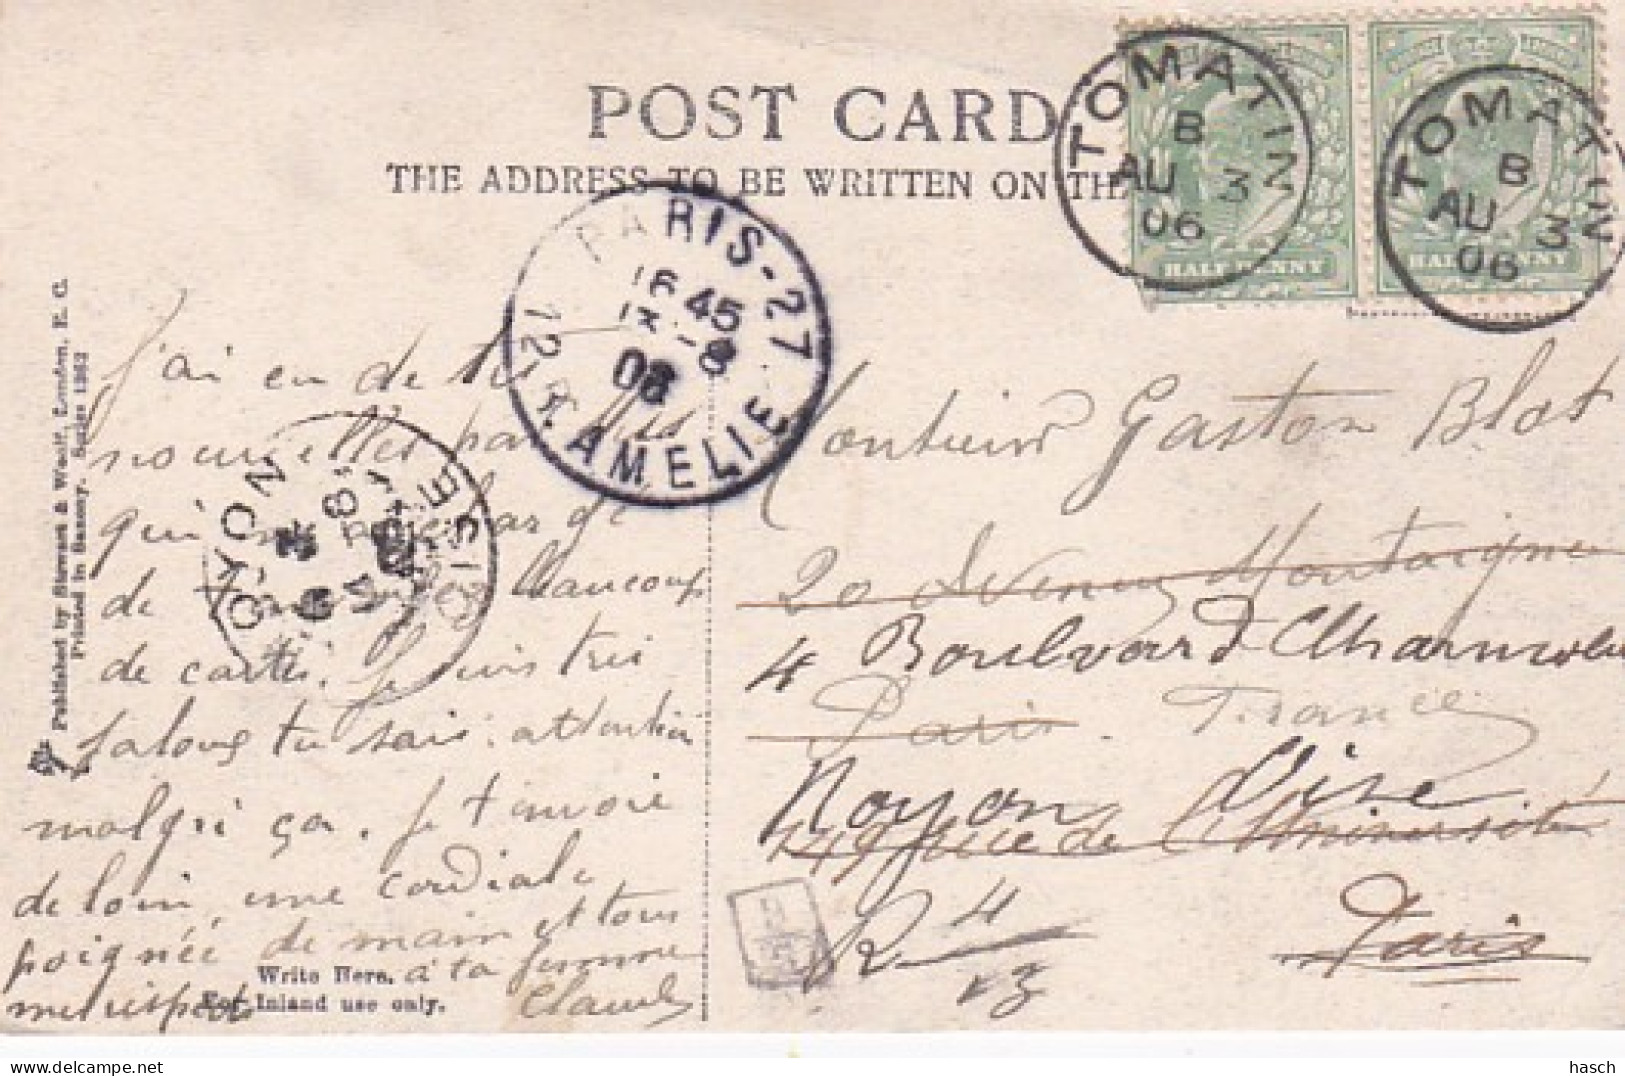 POST CARD
THE ADDRESS TO BE WRITTEN ON TH
TOMATIN
B
AU 3
06
TOMATIN
B
AU 3
06
HALF PENNY
HALF PENNY
PARIS-27
16 45
8
06
12 R. AMELIE
OYON
8
OISE
Published by Stewart & Woolf, London, E. C.
Printed in Saxony. Series 1363
J'ai eu de tes
nouvelles par
qui
de beaucoup
de cartes. Je suis très
jaloux tu sais: attention
malgré ça. Je t'envoie
de loin, une cordiale
poignée de main et tous
mes respects à ta femme
Claude
Write Here.
For Inland use only.
Monsieur Gaston Blot
20 Avenue Montaigne
4 Boulevard
Paris. France
Noyon Oise
149 rue de l'Université
Paris
4